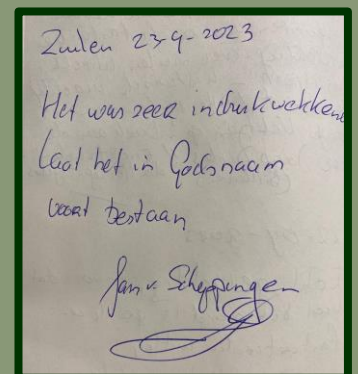 Zuilen 23-9-2023
Het was zeer indrukwekkend
Laat het in Godsnaam
voort bestaan
Jan v. Scheppingen